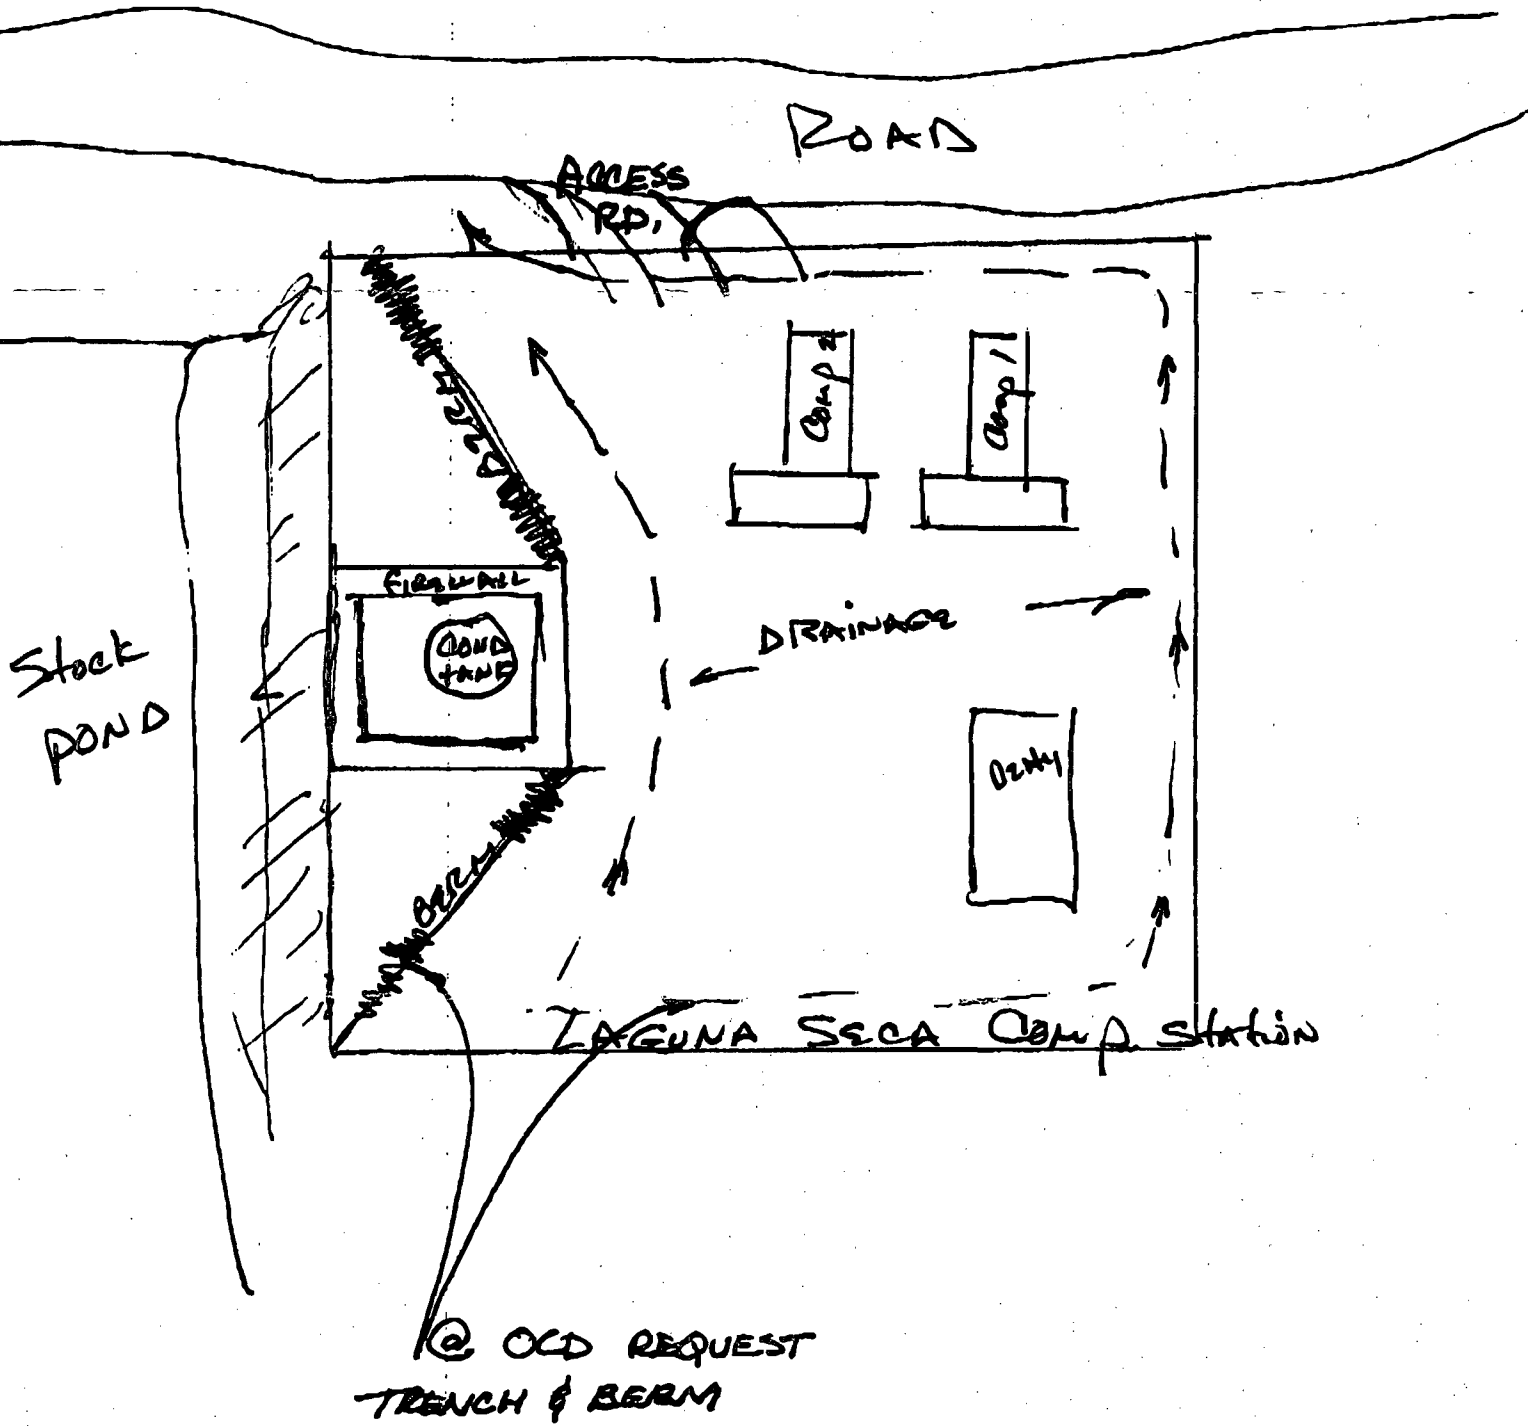 ROAD
ACCESS
RD.
COMP 2
COMP 1
BERM
FIREWALL
COND
TANK
DRAINAGE
Stock
POND
DEHY
BERM
LAGUNA SECA COMP. Station
@ OCD REQUEST
TRENCH & BERM